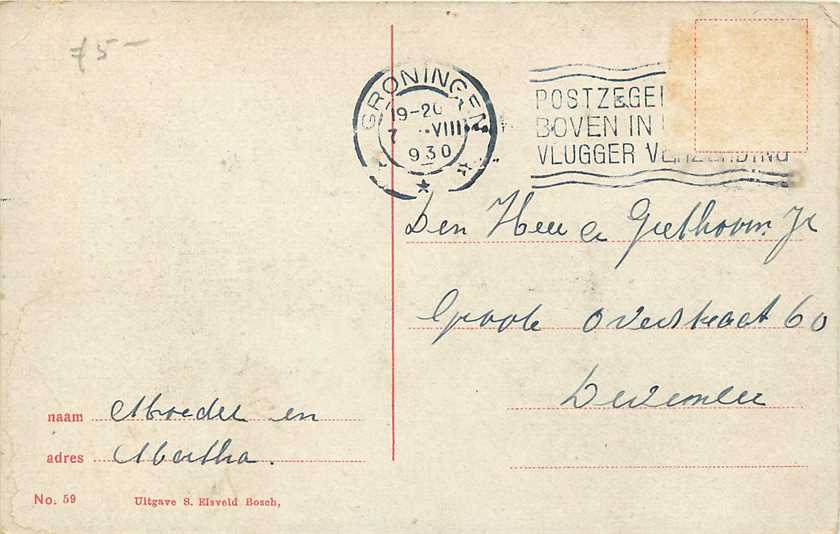 75-
GRONINGEN
19-20
7 VIII
930
POSTZEGEL
BOVEN IN
VLUGGER VERZENDING
Den Heer G Giethoorn Jr
Groote Overstraat 60
Deventer
naam Moeder en
adres Martha.
No. 59 Uitgave S. Elsveld Bosch,